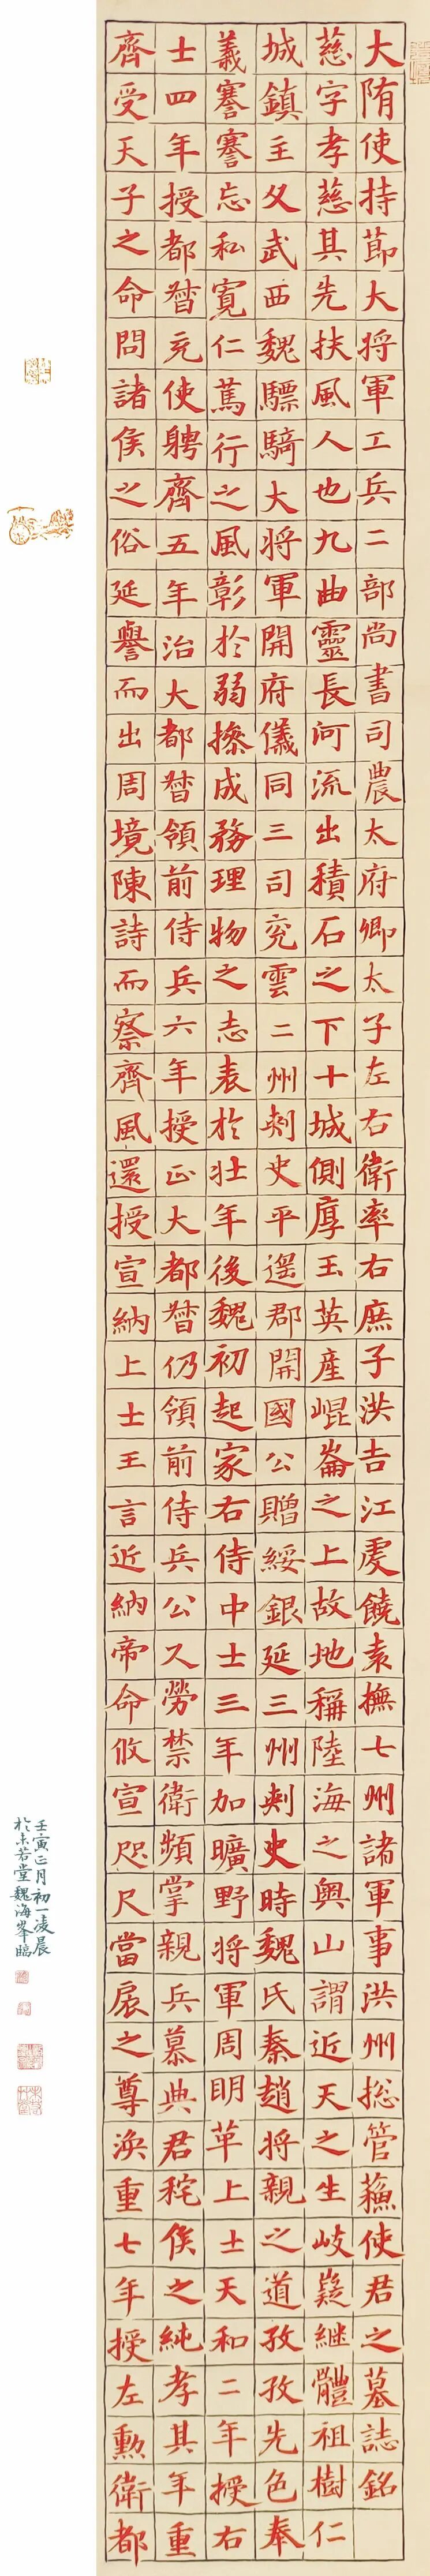 大隋使持節大将軍工兵二部尚書司農太府卿太子左右衛率右庶子洪吉江虔饒袁撫七州諸軍事洪州捴管蘓使君之墓誌銘
慈字孝慈其先扶風人也九曲靈長河流出積石之下十城側厚玉英産崐崙之上故地稱陸海之奥山謂近天之生岐嶷継體祖樹仁
城鎮主父武西魏驃騎大将軍開府儀同三司兖雲二州刾史平遥郡開國公贈綏銀延三州刾史時魏氏秦趙将親之道孜孜先色奉
義謇謇忘私寛仁篤行之風彰於弱掾成務理物之志表於壮年後魏初起家右侍中士三年加曠野将軍周明革上士天和二年授右
士四年授都督充使聘齊五年治大都督領前侍兵六年授正大都督仍領前侍兵公久勞禁衛頻掌親兵慕典君稅侯之純孝其年重
齊受天子之命問諸侯之俗延譽而出周境陳詩而察齊風還授宣納上士王言近納帝命攸宣咫尺當扆之尊渙重七年授左勲衛都
壬寅正月初一凌晨
於未若堂魏海峯臨